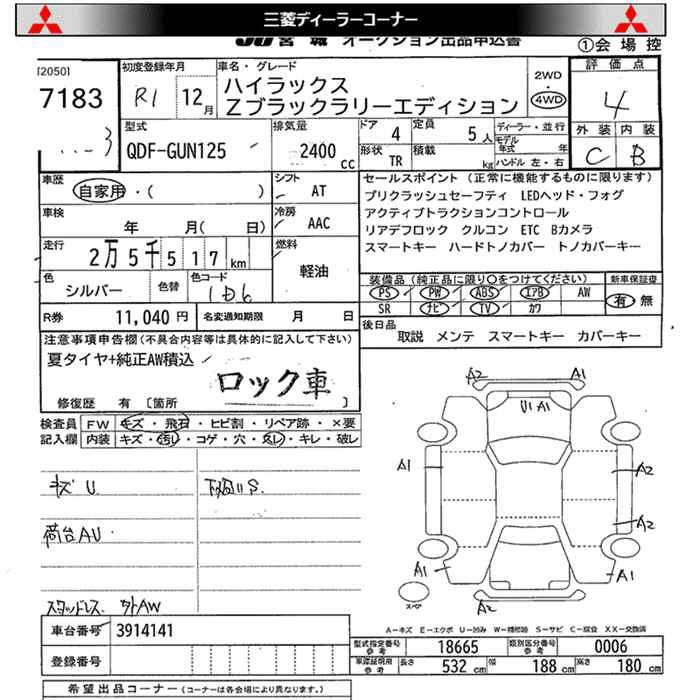 三菱ディーラーコーナー
JU宮城 オークション出品申込書
①会場控
[2050]
7183
初度登録年月
R1 12月
車名・グレード
ハイラックス
Zブラックラリーエディション
2WD
・
4WD
評価点
4
外装 内装
C B
型式
QDF-GUN125
排気量
2400 cc
ドア 4
定員 5人
形状 TR
積載 kg
ディーラー・並行
モデル年式 年
ハンドル 左・右
車歴
自家用・( )
シフト AT
車検 年 月( 日)
冷房 AAC
走行 2万5千517km
燃料 軽油
色 シルバー
色替
色コード 1D6
R券 11,040円
名変通知期限 月 日
セールスポイント(正常に機能するものに限ります)
プリクラッシュセーフティ LEDヘッド・フォグ
アクティブトラクションコントロール
リアデフロック クルコン ETC Bカメラ
スマートキー ハードトノカバー トノカバーキー
装備品(純正品に限り○をつけてください)
PS PW ABS エアB AW
SR ナビ TV カワ
新車保証書
有 無
後日品
取説 メンテ スマートキー カバーキー
注意事項申告欄(不具合内容等は具体的に記入して下さい)
夏タイヤ+純正AW積込
ロック車
修復歴 有〔箇所
検査員記入欄
FW キズ・飛石・ヒビ割・リペア跡・×要
内装 キズ・汚れ・コゲ・穴・スレ・キレ・破レ
キズU
下回りS.
荷台AU
スタッドレス 外AW
A2 A1
U1 A1
A1
A2
A2
A1
A1
スペア
A2
A-キズ E-エクボ U-凹み W-補修跡 S-サビ C-腐食 XX-交換済
車台番号 3914141
登録番号
型式指定番号参考 18665
類別区分番号参考 0006
車庫証明用参考 長さ 532cm 幅 188cm 高さ 180cm
希望出品コーナー(コーナーは各会場により異なります。)